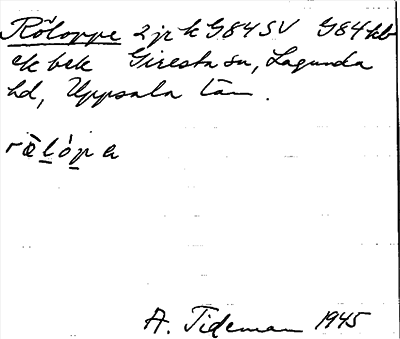 Röloppe 2 jr k G84SV G84kb
ek bek Giresta sn, Lagunda
hd, Uppsala län.
rö̀lópa
A. Tideman 1945